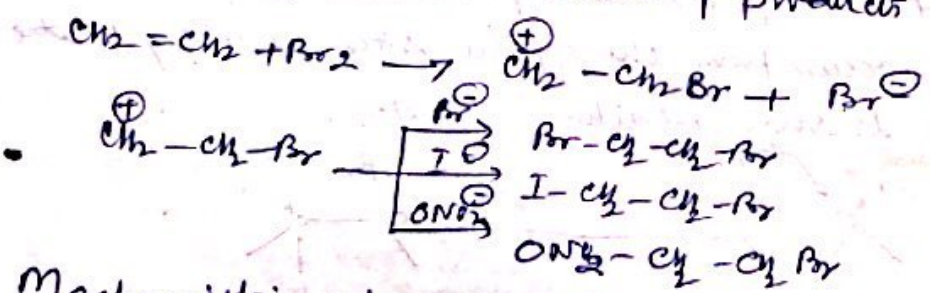 products
CH₂ = CH₂ + Br₂ ⟶ ⊕CH₂ – CH₂ Br + Br⊖
⊕CH₂ – CH₂ – Br ⟶ Br⊖ Br – CH₂ – CH₂ – Br
I⊖ I – CH₂ – CH₂ – Br
ONO₂⊖ ONO₂ – CH₂ – CH₂ Br